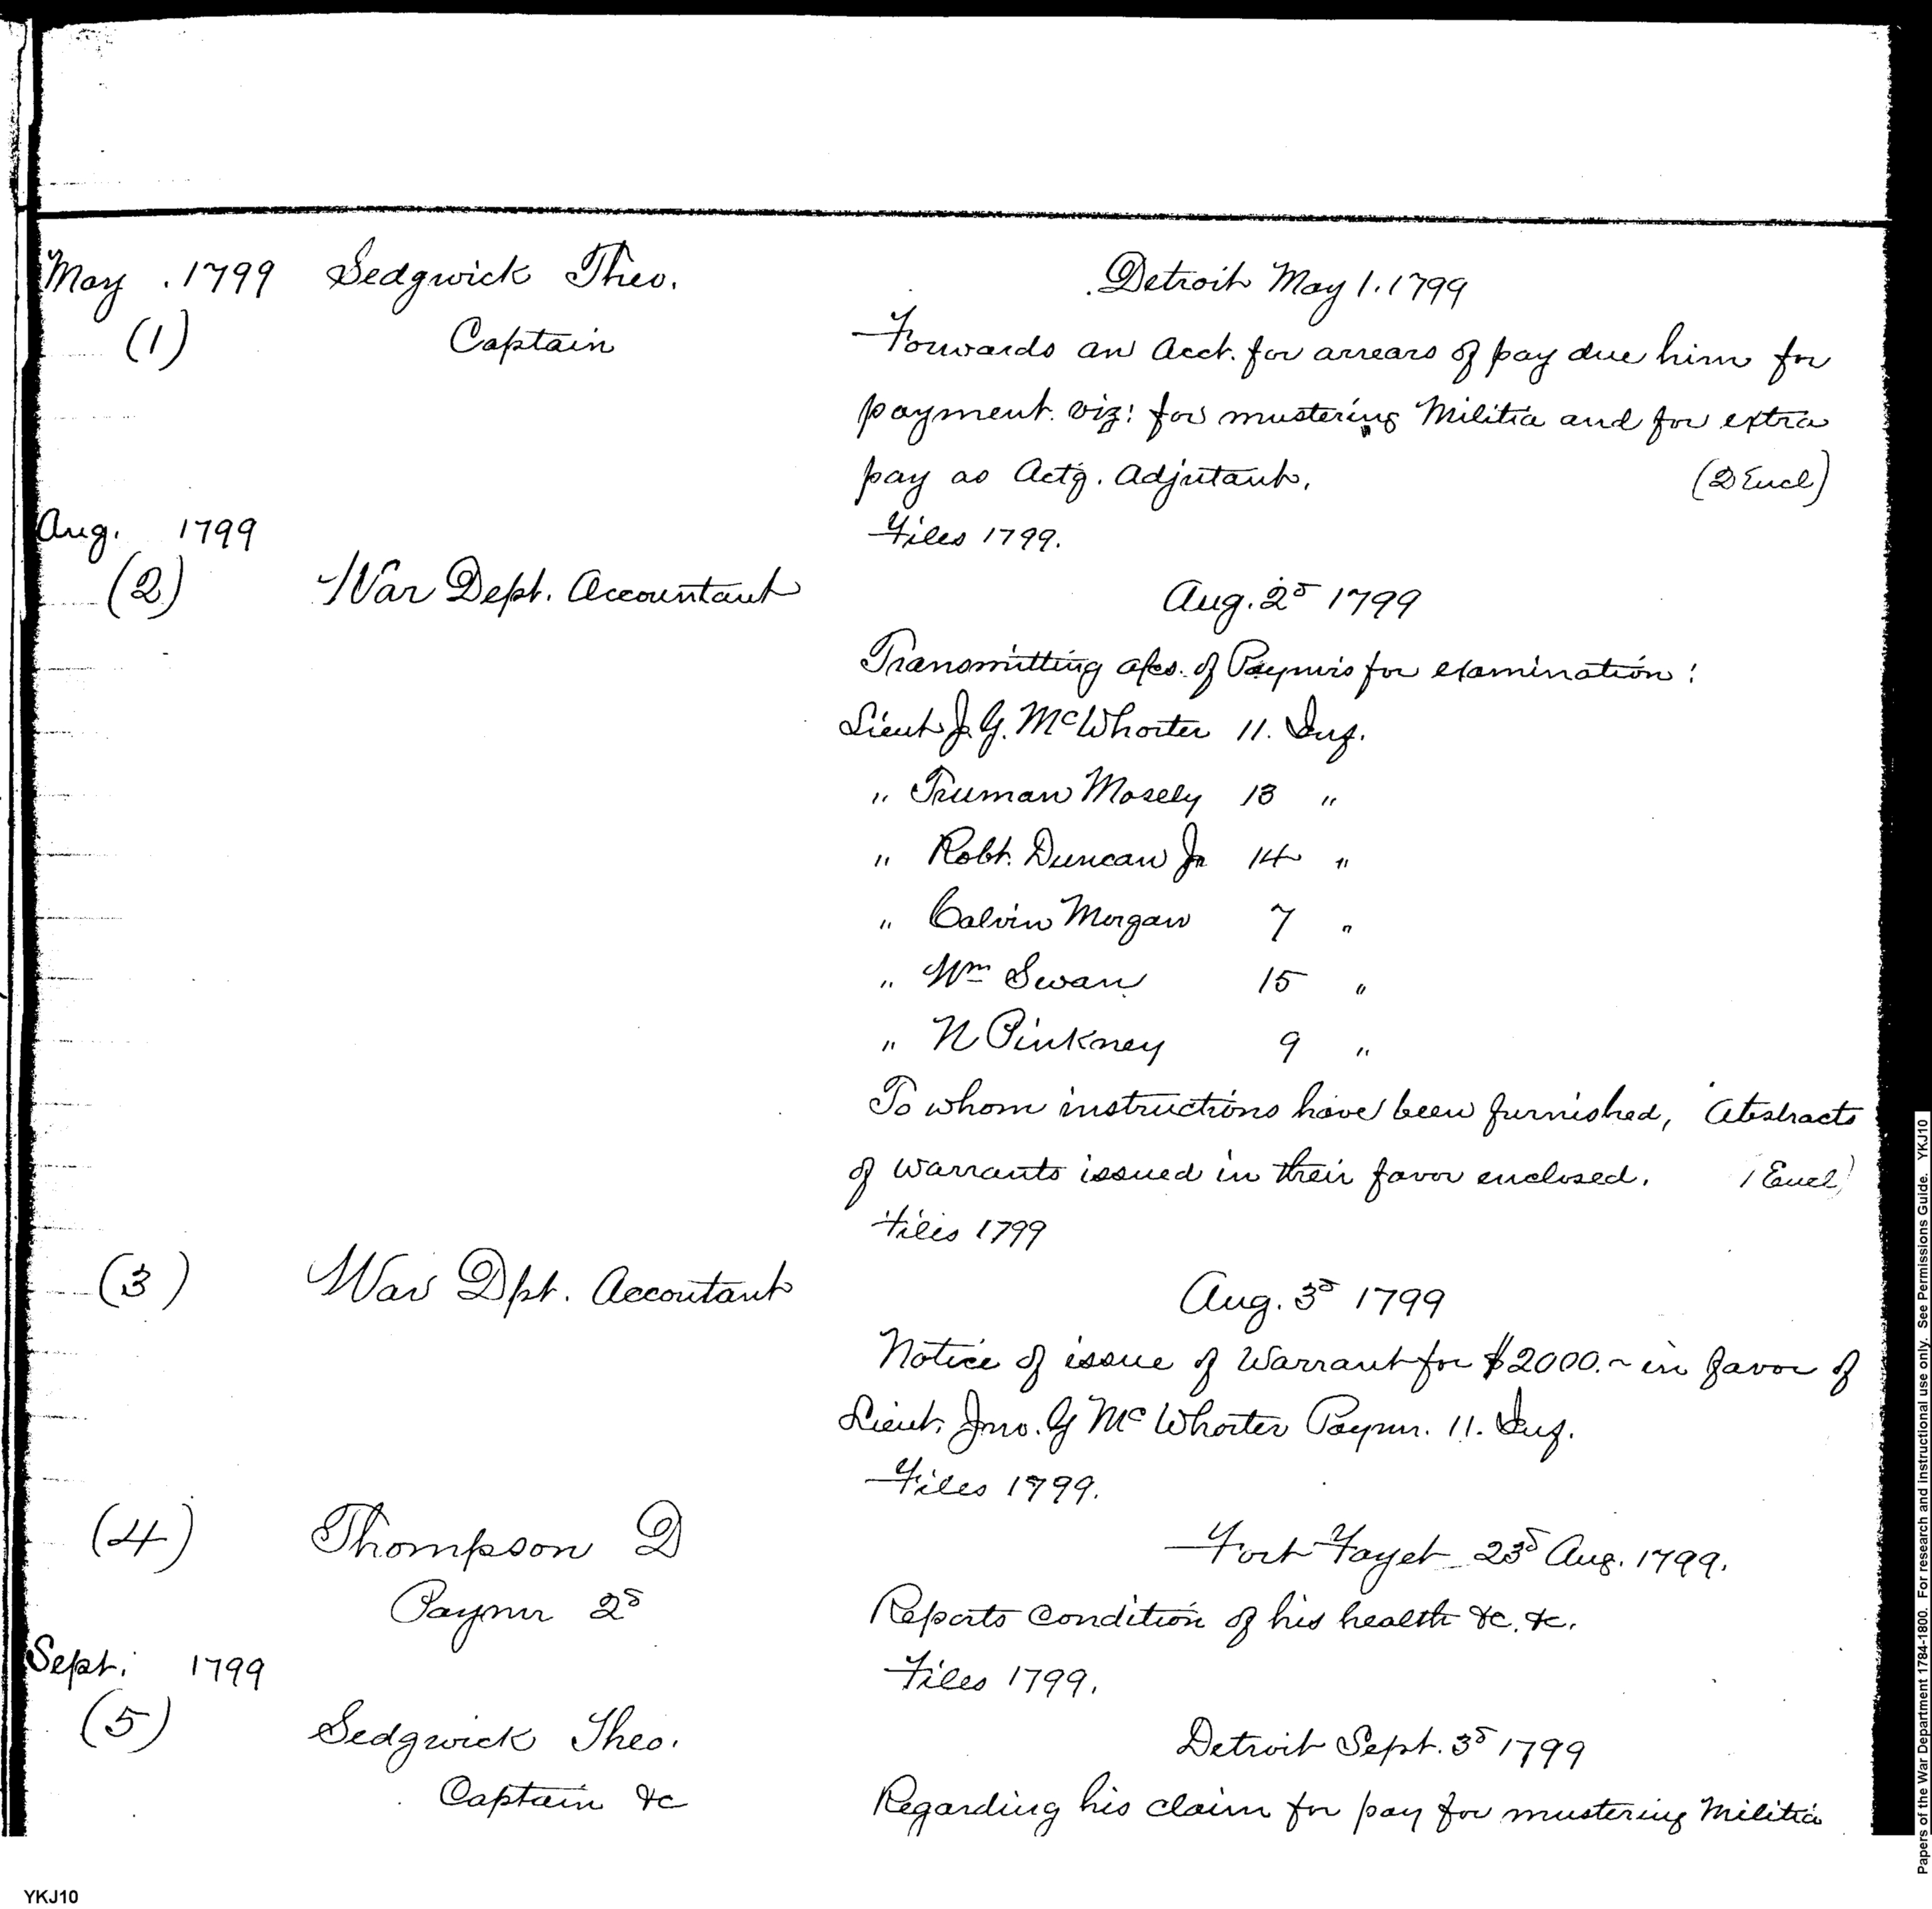 May . 1799 Sedgwick Theo. Detroit May 1. 1799
(1) Captain Forwards an Acct. for arrears of pay due him for
payment. viz: for mustering Militia and for extra
pay as Actg. Adjutant. (2 Encl)
Aug. 1799 Files 1799.
(2) War Dept. Accountant Aug. 2d 1799
Transmitting a/cs. of Paymrs for examination:
Lieut J. G. McWhorter 11. Inf.
" Truman Mosely 13 "
" Robt. Duncan Jr 14 "
" Calvin Morgan 7 "
" Wm Swan 15 "
" N Pinkney 9 "
To whom instructions have been furnished, Abstracts
of warrants issued in their favor enclosed. 1 Encl)
Files 1799
(3) War Dpt. Accoutant Aug. 3d 1799
Notice of issue of Warrant for $2000.~ in favor of
Lieut. Jno. G McWhorter Paymr. 11. Inf.
Files 1799.
(4) Thompson D Fort Fayet 23d Aug. 1799.
Paymr 2d Reports condition of his health &c. &c.
Sept. 1799 Files 1799.
(5) Sedgwick Theo. Detroit Sept. 3d 1799
Captain &c Regarding his claim for pay for mustering Militia
YKJ10
Papers of the War Department 1784-1800. For research and instructional use only. See Permissions Guide. YKJ10